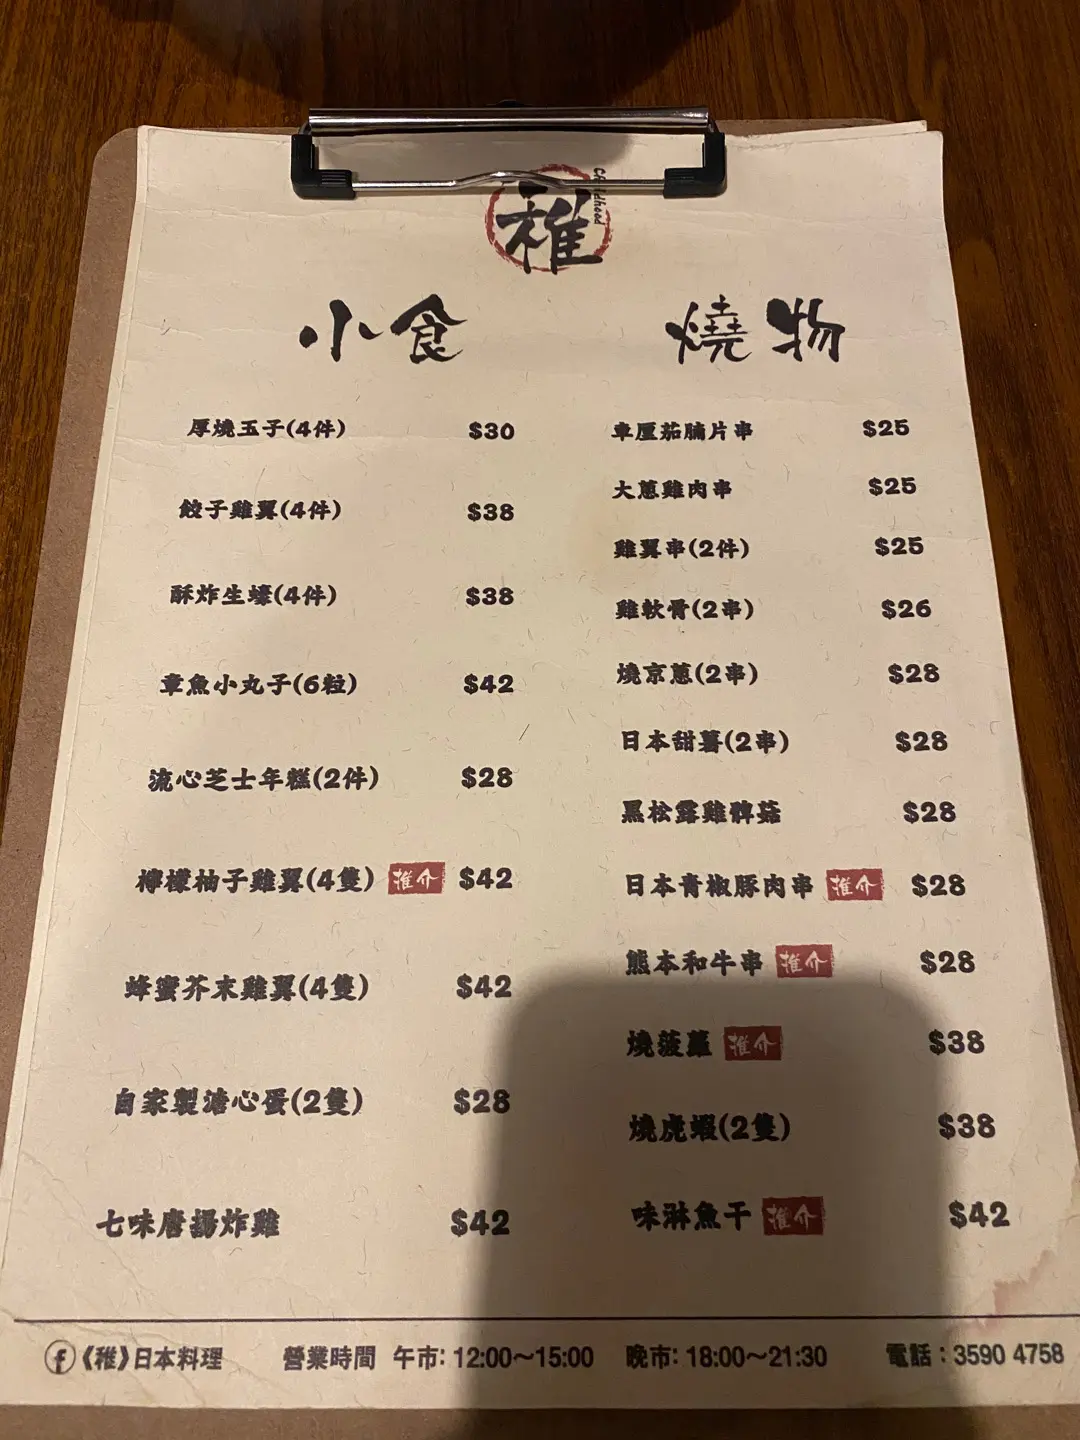 稚
Childhood
小食
厚燒玉子(4件) $30
餃子雞翼(4件) $38
酥炸生蠔(4件) $38
章魚小丸子(6粒) $42
流心芝士年糕(2件) $28
檸檬柚子雞翼(4隻) 推介 $42
蜂蜜芥末雞翼(4隻) $42
自家製溏心蛋(2隻) $28
七味唐揚炸雞 $42
燒物
車厘茄腩片串 $25
大蔥雞肉串 $25
雞翼串(2件) $25
雞軟骨(2串) $26
燒京蔥(2串) $28
日本甜薯(2串) $28
黑松露雞髀菇 $28
日本青椒豚肉串 推介 $28
熊本和牛串 推介 $28
燒菠蘿 推介 $38
燒虎蝦(2隻) $38
味淋魚干 推介 $42
f《稚》日本料理 營業時間 午市: 12:00～15:00 晚市: 18:00～21:30 電話：3590 4758